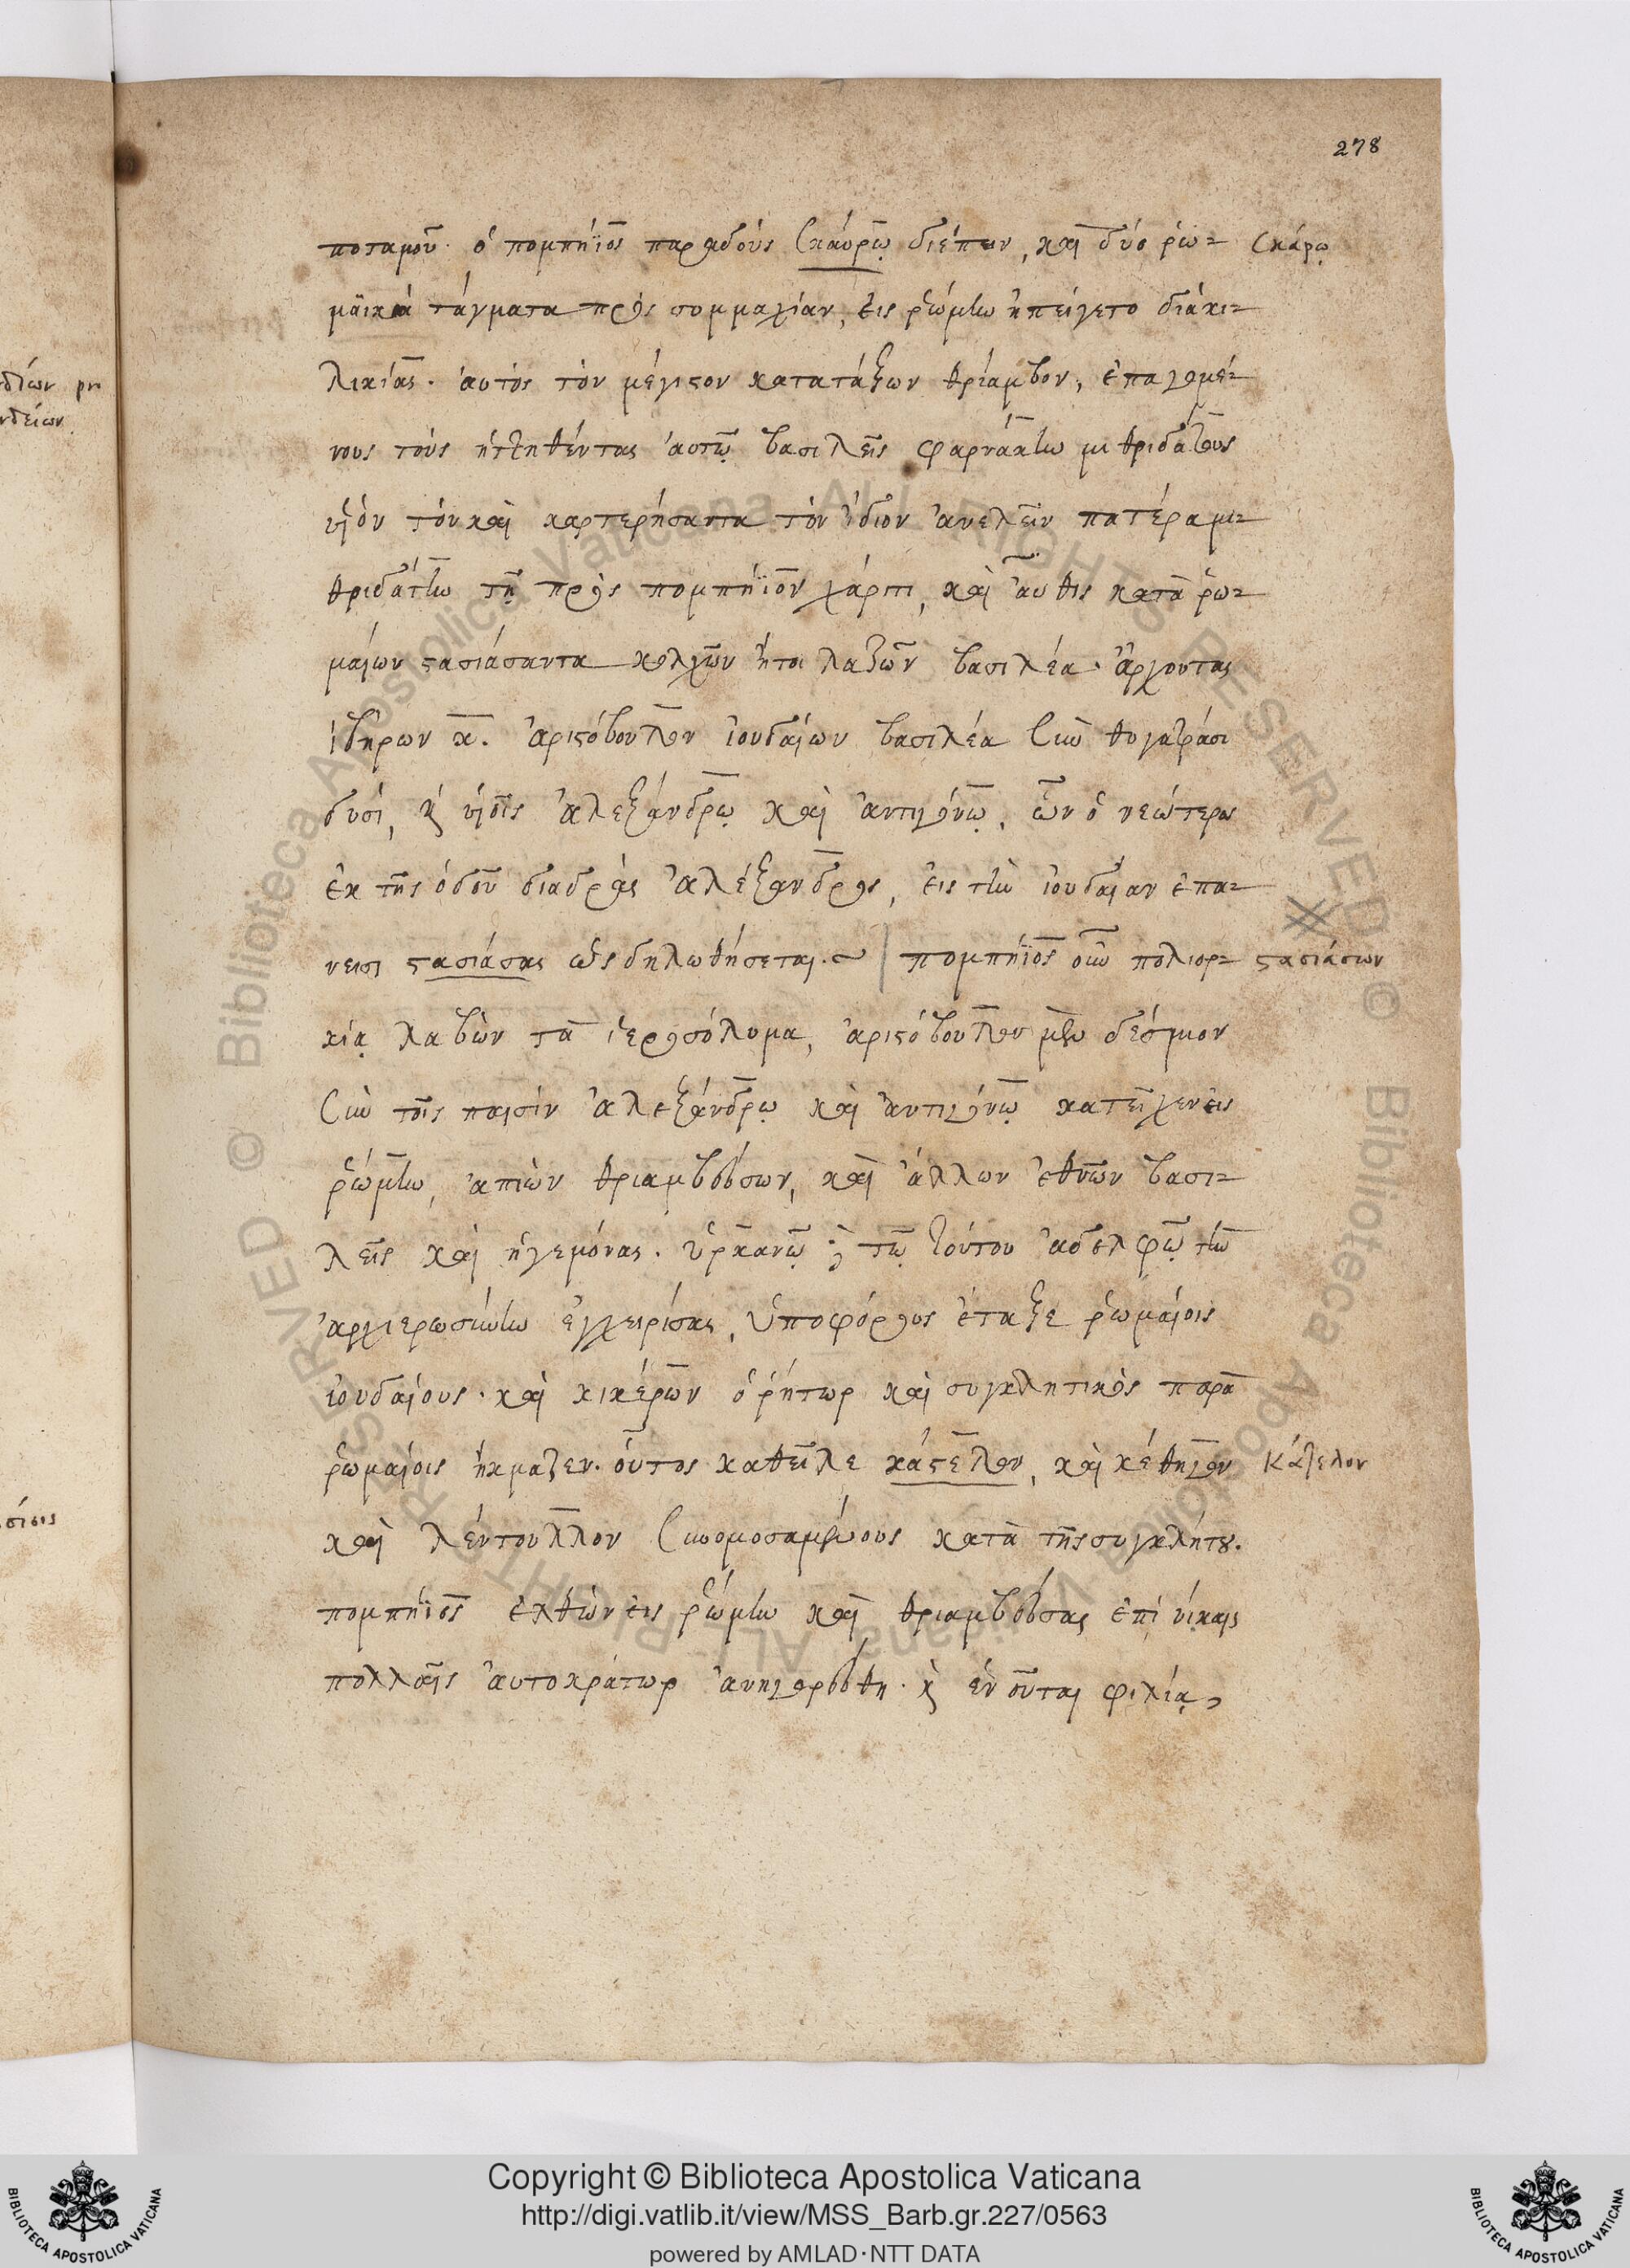 278
ποταμοῦ· ὁ πομπήϊος παραδοὺς Σκαύρῳ διέπειν, καὶ δύο ῥω- Σκάρῳ
μαϊκὰ τάγματα πρὸς συμμαχίαν, εἰς ῥώμην ἠπείγετο διὰ κι-
λικίας. αὐτὸς τὸν μέγιστον κατατάξων θρίαμβον, ἐπαγομέ-
νους τοὺς ἡττηθέντας αὐτῷ βασιλεῖς φαρνάκην μιθριδάτους
υἱὸν τὸν καὶ καρτερήσαντα τὸν ἴδιον ἀνελεῖν πατέρα μι-
θριδάτην τῇ πρὸς πομπήϊον χάριτι, καὶ αὖθις κατὰ ῥω-
μαίων στασιάσαντα κολχῶν ἤτοι λαζῶν βασιλέα. ἄρχοντας
ἰβήρων κ. ἀριστόβουλον ἰουδαίων βασιλέα σὺν θυγατράσι
δυσὶ, καὶ υἱοῖς ἀλεξάνδρῳ καὶ ἀντιγόνῳ, ὧν ὁ νεώτερος
ἐκ τῆς ὁδοῦ διαδρὰς ἀλέξανδρος, εἰς τὴν ἰουδαίαν ἐπα-
νεισι στασιάσας ὡς δηλωθήσεται. | πομπήϊος οὖν πολιορ- στασιάσων
κίᾳ λαβὼν τὰ ἱεροσόλυμα, ἀριστόβουλον μὲν δέσμιον
σὺν τοῖς παισὶν ἀλεξάνδρῳ καὶ ἀντιγόνῳ κατεῖχεν εἰς
ῥώμην, ἀπιὼν θριαμβεύσων, καὶ ἄλλων ἐθνῶν βασι-
λεῖς καὶ ἡγεμόνας. ὑρκανῷ δὲ τῷ τούτου ἀδελφῷ τὴν
ἀρχιερωσύνην ἐγχειρίσας, ὑποφόρους ἔταξε ῥωμαίοις
ἰουδαίους. καὶ κικέρων ὁ ῥήτωρ καὶ συγκλητικὸς παρὰ
ῥωμαίοις ἤκμαζεν. οὗτος καθεῖλε κάστελον, καὶ κέθηγον Κάτελον
καὶ λέντουλλον συνομοσαμένους κατὰ τῆς συγκλήτου.
πομπήϊος ἐλθὼν εἰς ῥώμην καὶ θριαμβεύσας ἐπὶ νίκαις
πολλαῖς αὐτοκράτωρ ἀνηγορεύθη. καὶ ἑνοῦται φιλίᾳ,
Copyright © Biblioteca Apostolica Vaticana
http://digi.vatlib.it/view/MSS_Barb.gr.227/0563
powered by AMLAD·NTT DATA